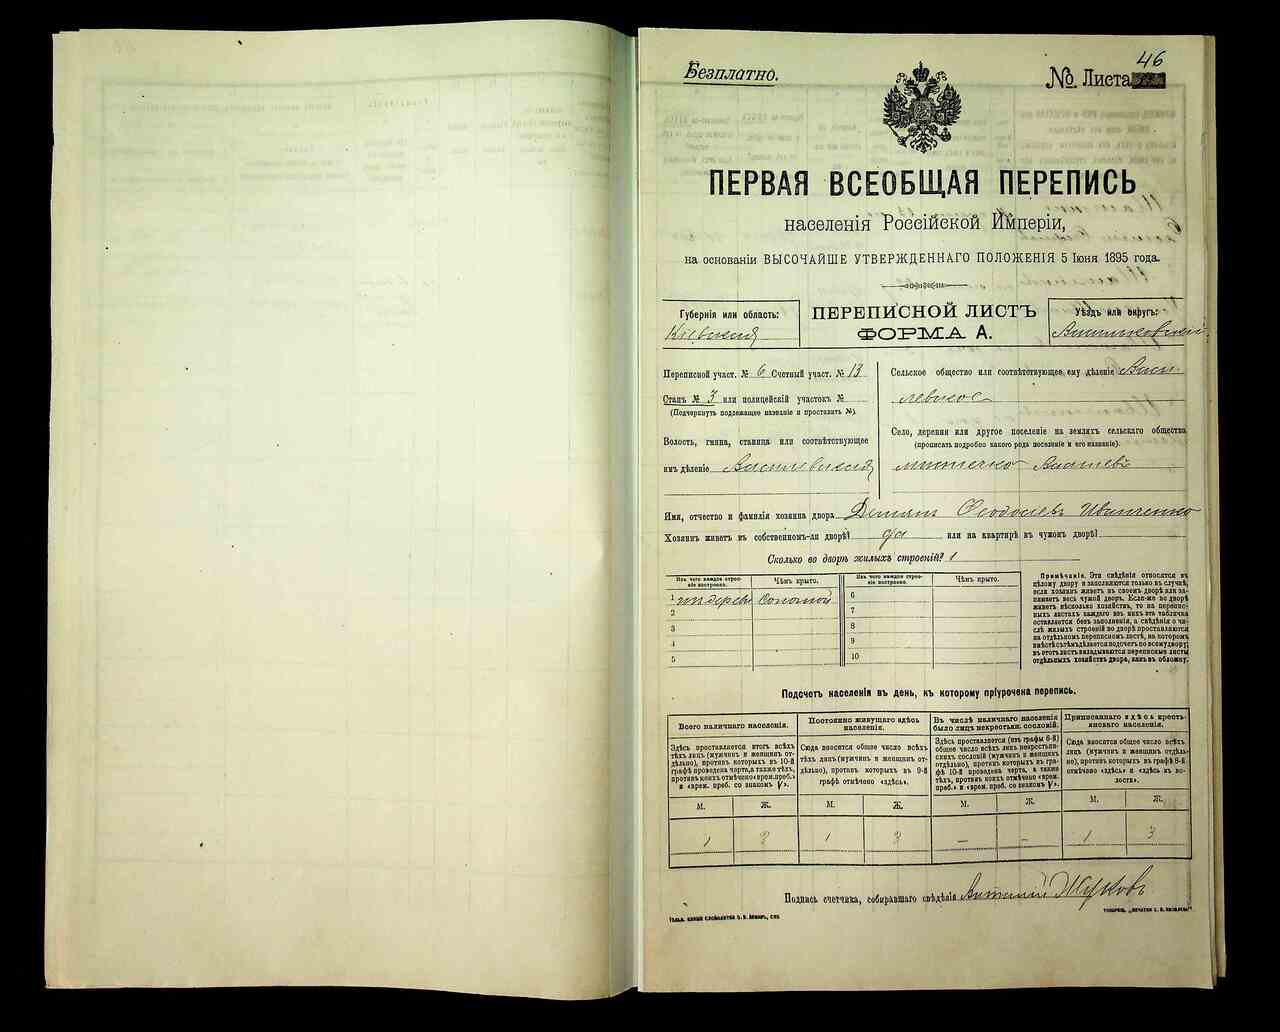 46
Безплатно.
№ Листа
ПЕРВАЯ ВСЕОБЩАЯ ПЕРЕПИСЬ
населенія Россійской Имперіи,
на основаніи ВЫСОЧАЙШЕ УТВЕРЖДЕННАГО ПОЛОЖЕНІЯ 5 Іюня 1895 года.
Губернія или область:
Кіевская
ПЕРЕПИСНОЙ ЛИСТЪ
ФОРМА А.
Уѣздъ или округъ:
Васильковскій
Переписной участ. № 6 Счетный участ. № 13
Станъ № 3 или полицейскій участокъ №
(Подчеркнуть подлежащее названіе и проставить №).
Волость, гмина, станица или соотвѣтствующее
имъ дѣленіе Василевская
Сельское общество или соотвѣтствующее ему дѣленіе Васи-
левское
Село, деревня или другое поселеніе на земляхъ сельскаго общества
(прописать подробно какого рода поселеніе и его названіе).
мѣстечко
Имя, отчество и фамилія хозяина двора Демьян Феодосіевъ Иванченко
Хозяинъ живетъ въ собственномъ-ли дворѣ? да или на квартирѣ въ чужомъ дворѣ?
Сколько во дворѣ жилыхъ строеній? 1
Изъ чего каждое строе-
ніе построено.
Чѣмъ крыто.
Изъ чего каждое строе-
ніе построено.
Чѣмъ крыто.
1 изъ дерева Соломой
2
3
4
5
6
7
8
9
10
Примѣчаніе. Эти свѣдѣнія относятся къ
цѣлому двору и заполняются только въ случаѣ,
если хозяинъ живетъ въ своемъ дворѣ или за-
нимаетъ весь чужой дворъ. Если-же во дворѣ
живетъ нѣсколько хозяйствъ, то на перепис-
ныхъ листахъ каждаго изъ нихъ эта табличка
оставляется безъ заполненія, а свѣдѣнія о чи-
слѣ жилыхъ строеній во дворѣ проставляются
на отдѣльномъ переписномъ листѣ, на которомъ
вмѣстѣ съ тѣмъ дѣлается подсчетъ по всему двору;
въ этотъ листъ вкладываются переписные листы
отдѣльныхъ хозяйствъ двора, какъ въ обложку.
Подсчетъ населенія въ день, къ которому пріурочена перепись.
Всего наличнаго населенія.
Постоянно живущаго здѣсь
населенія.
Въ числѣ наличнаго населенія
было лицъ некрестьянск. сословій.
Приписаннаго здѣсь кресть-
янскаго населенія.
Здѣсь проставляется итогъ всѣхъ
тѣхъ лицъ (мужчинъ и женщинъ от-
дѣльно), противъ которыхъ въ 10-й
графѣ проведена черта, а также тѣхъ,
противъ коихъ отмѣчено «врем. преб.»
и «врем. преб. со знакомъ V».
Сюда вносится общее число всѣхъ
тѣхъ лицъ (мужчинъ и женщинъ от-
дѣльно), противъ которыхъ въ 9-й
графѣ отмѣчено «здѣсь».
Здѣсь проставляется (изъ графы 6-й)
общее число всѣхъ лицъ некрестьян-
скихъ сословій (мужчинъ и женщинъ
отдѣльно), противъ которыхъ въ гра-
фѣ 10-й проведена черта, а также
отмѣчено «врем.
преб.» и «врем. преб. со знакомъ V».
Сюда вносится общее число всѣхъ
лицъ (мужчинъ и женщинъ отдѣль-
но), противъ которыхъ въ графѣ 8-й
отмѣчено «здѣсь» и «здѣсь въ во-
лости».
М. Ж. М. Ж. М. Ж. М. Ж.
1 3 1 3 — — 1 3
Подпись счетчика, собиравшаго свѣдѣнія Виталий Жуковъ